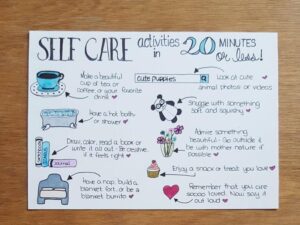 SELF CARE activities in 20 MINUTES or less!
Make a beautiful
cup of tea or
coffee, or your favorite
drink
cute puppies
Look at cute
animal photos or videos
Have a hot bath
or shower
Snuggle with something
soft and squishy
Draw, color, read a book or
write it all out - Be creative
if it feels right
journal
Admire something
beautiful - Go outside &
be with mother nature if
possible
Enjoy a snack or treat you love
Have a nap, build a
blanket fort, or be a
blanket burrito
Remember that you are
soooo loved. Now say it
out loud